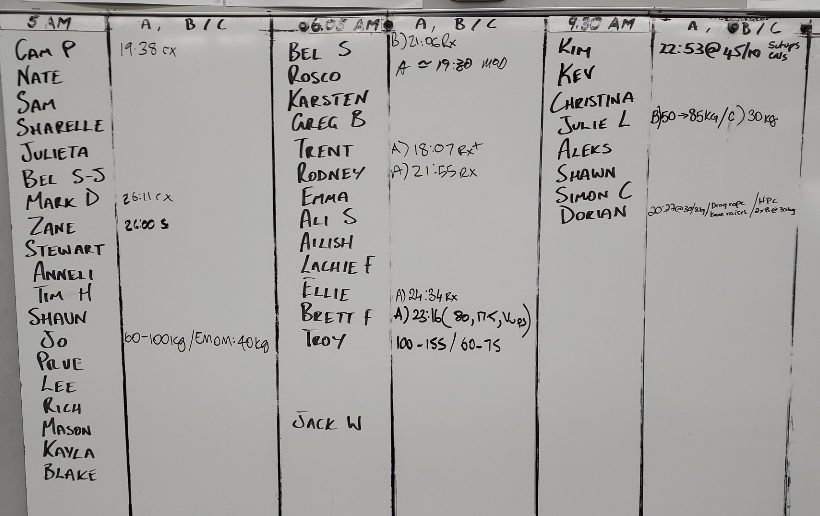 5 AM A, B/C
CAM P 19:38 rx
NATE
SAM
SHARELLE
JULIETA
BEL S-J
MARK D 26:11 rx
ZANE 26:00 S
STEWART
ANNELI
TIM H
SHAUN
JO 60-100kg/EMOM:40kg
LEE
RICH
MASON
KAYLA
BLAKE
06.05 AM A, B/C
BEL S B) 21:06 Rx
ROSCO A ~ 19:30 MOD
KARSTEN
GREG B
TRENT A) 18:07 Rx+
RODNEY A) 21:55 Rx
EMMA
ALI S
AILISH
LACHIE F
ELLIE A) 24:34 Rx
BRETT F A) 23:16 (80, T15, Vups)
TROY 100-155/60-75
JACK W
9.30 AM A, B/C
KIM 22:53@45/10 Situps cals
KEV
CHRISTINA
JULIE L B) 50→85KG/C) 30kg
ALEKS
SHAWN
SIMON C
DORIAN /Drag rope knee raises /HPC